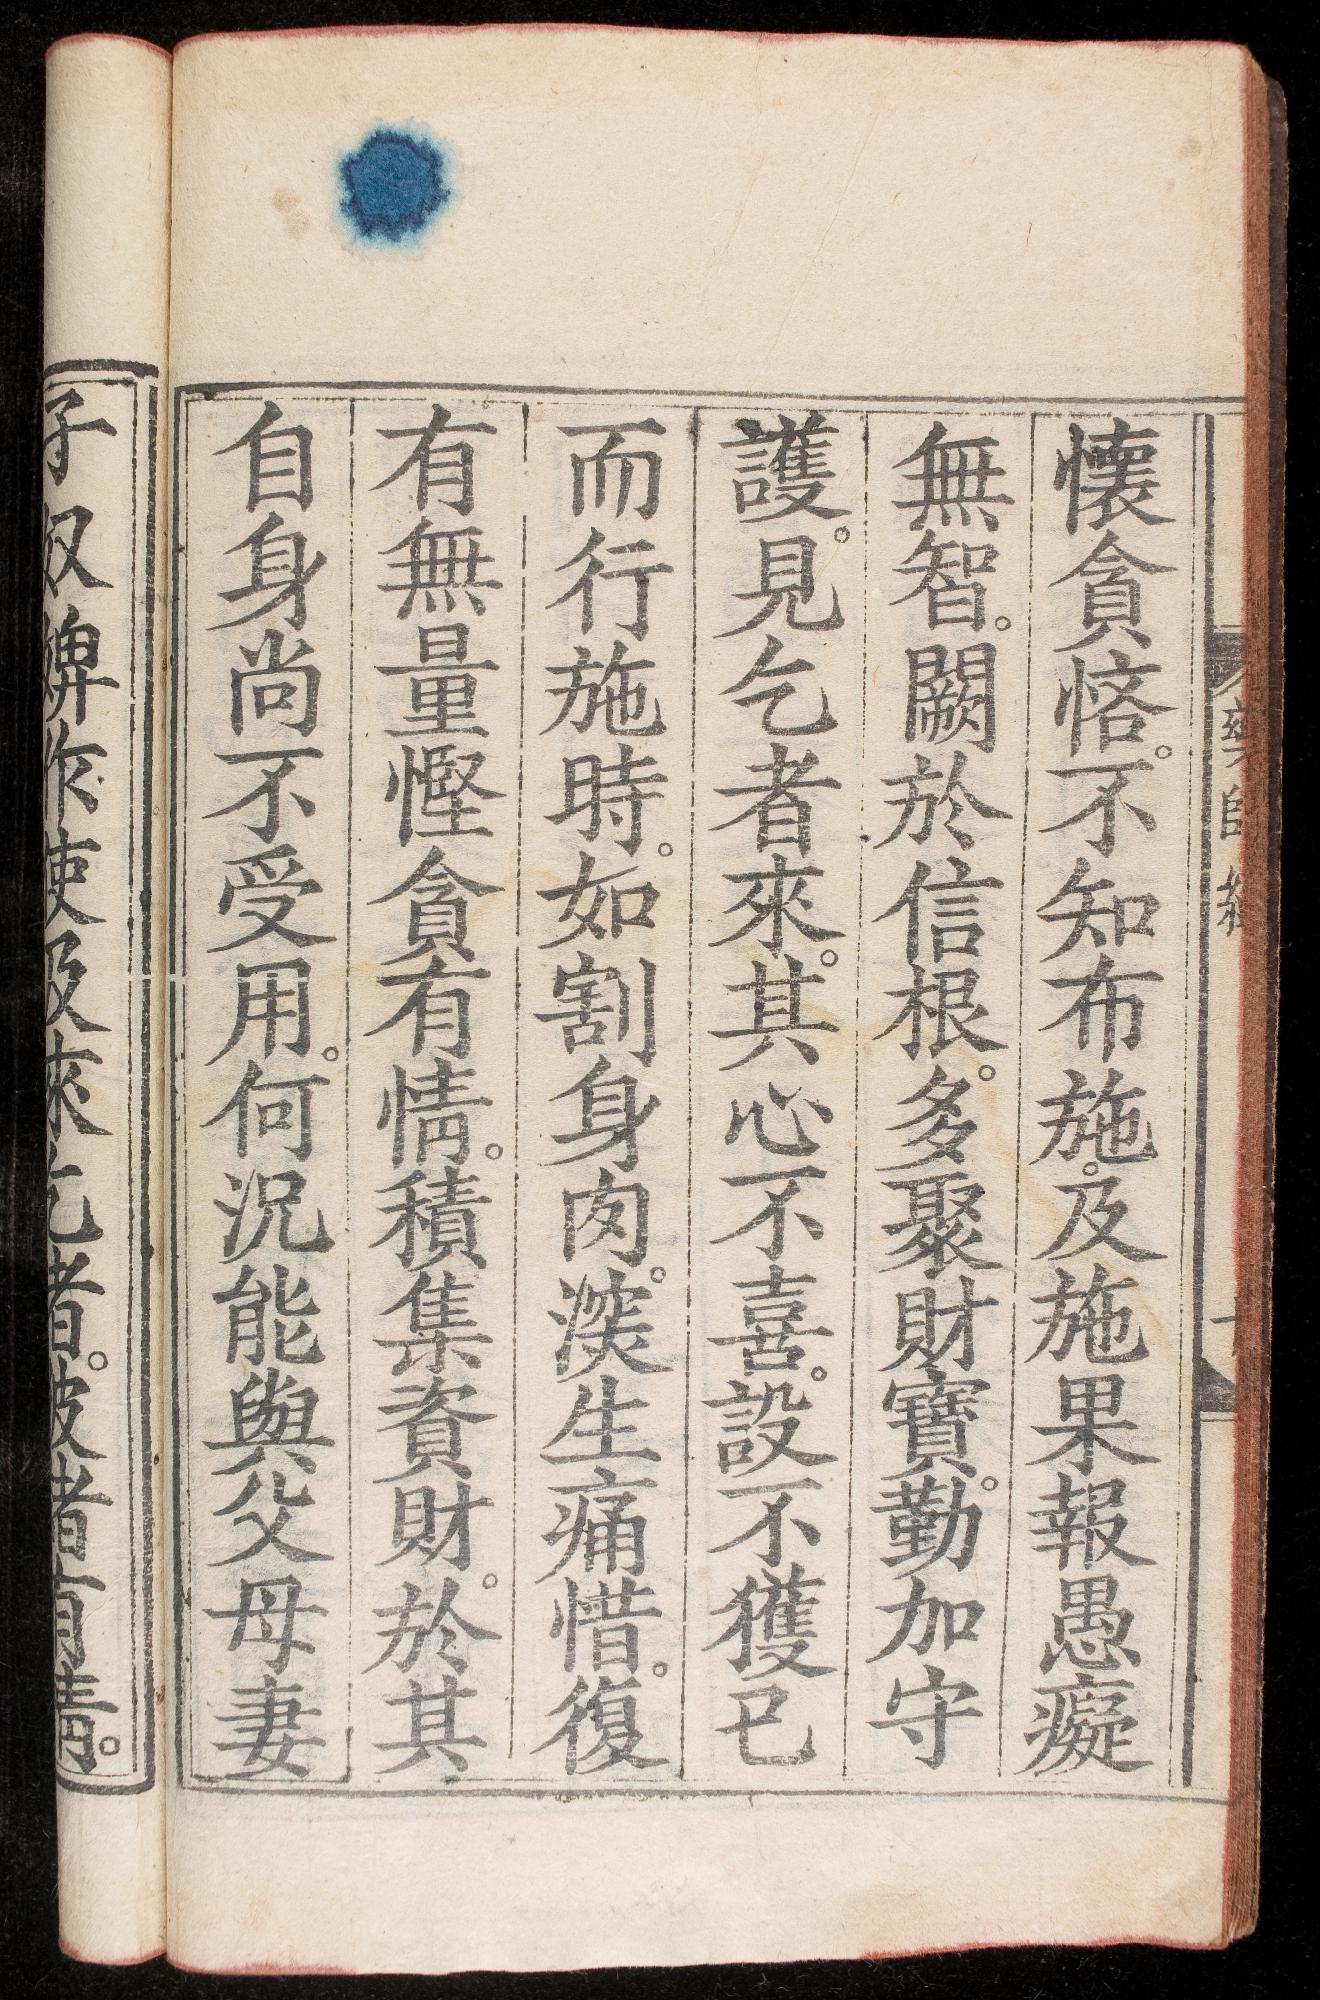 懷貪悋。不知布施。及施果報愚癡
無智。闕於信根。多聚財寶。勤加守
護。見乞者來。其心不喜。設不獲已
而行施時。如割身肉。深生痛惜。復
有無量慳貪有情。積集資財。於其
自身尚不受用。何況能與父母妻
子奴婢作使及來乞者。彼諸有情。
藥師經